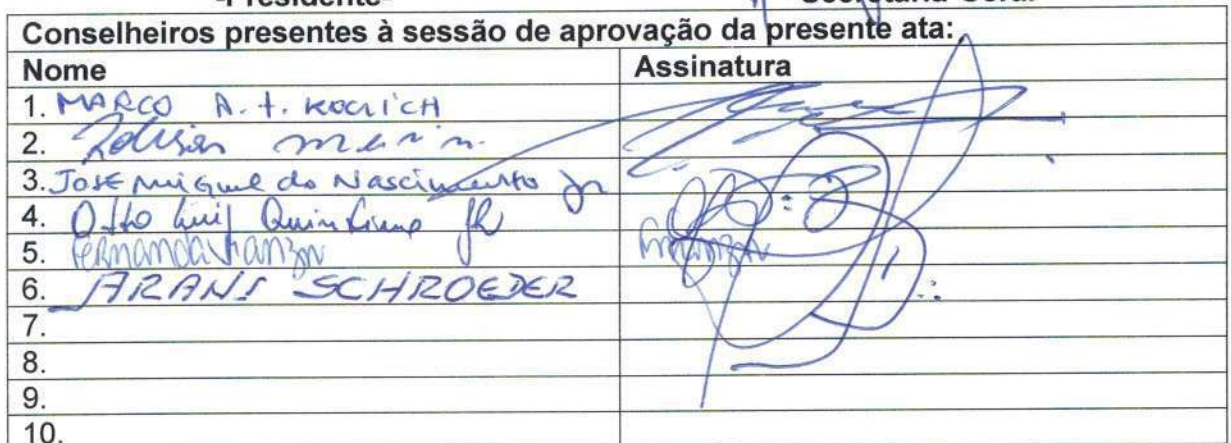 -Presidente-
Conselheiros presentes à sessão de aprovação da presente ata:
Nome Assinatura
1. MARCO A. t. KOERICH
2.
3. JOSE MIGUEL do Nascimento Jr
4. Otto Luiz Quintino JR
5. Fernanda Manzini
6. IRANI SCHROEDER
7.
8.
9.
10.